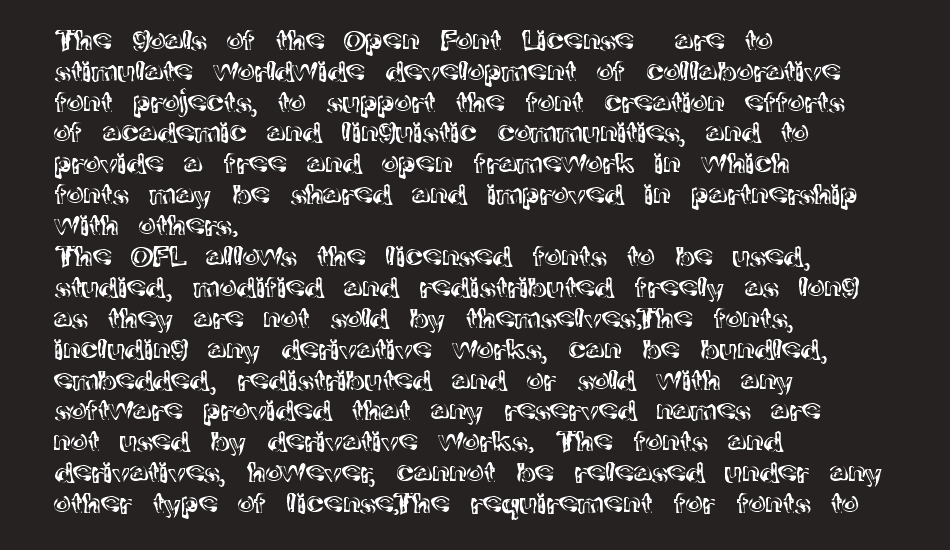 The goals of the Open Font License are to
stimulate worldwide development of collaborative
font projects, to support the font creation efforts
of academic and linguistic communities, and to
provide a free and open framework in which
fonts may be shared and improved in partnership
with others,
The OFL allows the licensed fonts to be used,
studied, modified and redistributed freely as long
as they are not sold by themselves,The fonts,
including any derivative works, can be bundled,
embedded, redistributed and or sold with any
software provided that any reserved names are
not used by derivative works, The fonts and
derivatives, however, cannot be released under any
other type of license,The requirement for fonts to